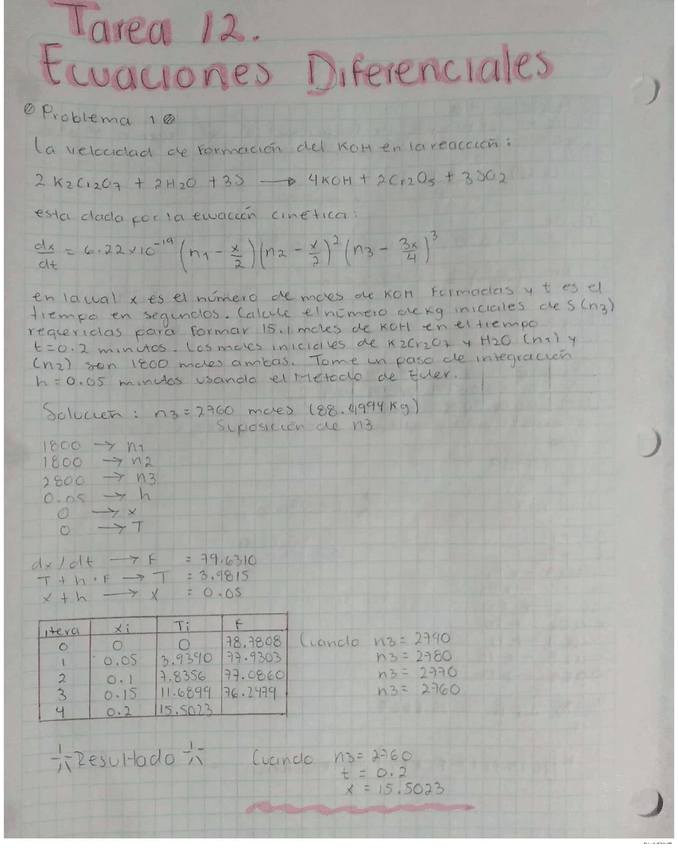 Tarea 12.
Ecuaciones Diferenciales
Problema 1
La velocidad de formación del KOH en la reacción:
2 K2Cr2O7 + 2H2O + 3S → 4KOH + 2Cr2O5 + 3SO2
esta dada por la ewación cinética:
dx/dt = 6.22x10^-19 (n1 - x/2)(n2 - x/2)^2 (n3 - 3x/4)^3
en la cual x es el número de moles de KOH Formadas y t es el
tiempo en segundos. Calcule el número de Kg iniciales de S (n3)
requeridas para formar 15.1 moles de KOH en el tiempo
t=0.2 minutos. Los moles iniciales de K2Cr2O7 y H2O (n1) y
(n2) son 1800 moles ambas. Tome un paso de integración
h=0.05 minutos usando el Método de Euler.
Solución: n3=2760 moles (88.4994 Kg)
Suposición de n3
1800 → n1
1800 → n2
2800 → n3
0.05 → h
0 → x
0 → T
dx/dt → F = 79.6310
T+h·F → T = 3.9815
x+h → X = 0.05
itera Xi Ti F
0 0 0 78.7808 Cuando n3=2790
1 0.05 3.9390 77.9303 n3=2780
2 0.1 7.8356 77.0860 n3=2770
3 0.15 11.6899 76.2479 n3=2760
4 0.2 15.5023
Resultado Cuando n3=2760
t = 0.2
x = 15.5023